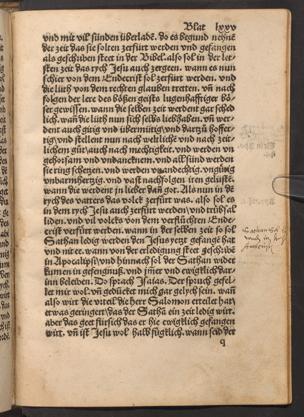 Blat lxxv
vnd mir vil sünden überlade. do es begund nehne
der zeit das sie solten zerfürt werden vnd gefangen
als geschriben steet in der Bibel. also sol in der letz
sten zeit das rych Jesu auch zergeen. wann es nun
schier von dem Endecrist sol zerfürt werden. vnd
die lüth von dem rechten glauben tretten. vñ nach
folgen der lere des bößen geists lugenhafftiger bö
ser gewissen. wann die selben zeit werdent gar schäd
lich. wañ die lüth nun sich selbs liebhaben. vñ wer
dent auch gütig vnd übermütig vnd darzü hoffer
tig. vnd stellent nun nach wirtliche vnd nach zeit
lichem güt. auch nach mechtigkeit. vnd werden vn
gehorsam vnd vndancknem. vnd all sünd werden
sie ring schetzen. vnd werden vnandechtig. vngütig
vnbarmhertzig. vnd vast nachfolgen iren glüsten
wann die werdent in lieber dañ got. Als nun in dē
rych des vatters das volck zerfürt was. also sol es
in dem rych Jesu auch zerfürt werden vnd trübsal
liden. vnd vil volcks von dem verflüchten Ende
crist verfürt werden. wann in der selben zeit so sol
Sathan ledig werden den Jesus yetz gefangē hat
vnd nit ee. wann von der erledigung steet geschribē
in Apocalipsi vnd hinnach sol der Sathan wider
kumen in gefengnuß. vnd ymer vnd ewiglich dar
inn beleiben. Do sprach Isaias. Der spruch gefel
let mir wol. vñ gedücket mich gar gelych sein. wañ
also wirt die urteil die herr Salomon erteilet hat
et was geringert das der Sathā ein zeit ledig wirt.
aber das geet fürsich das er hie ewiglich gefangen
wirt. vñ ist Jesu wol halb füglich. wann seid der
q